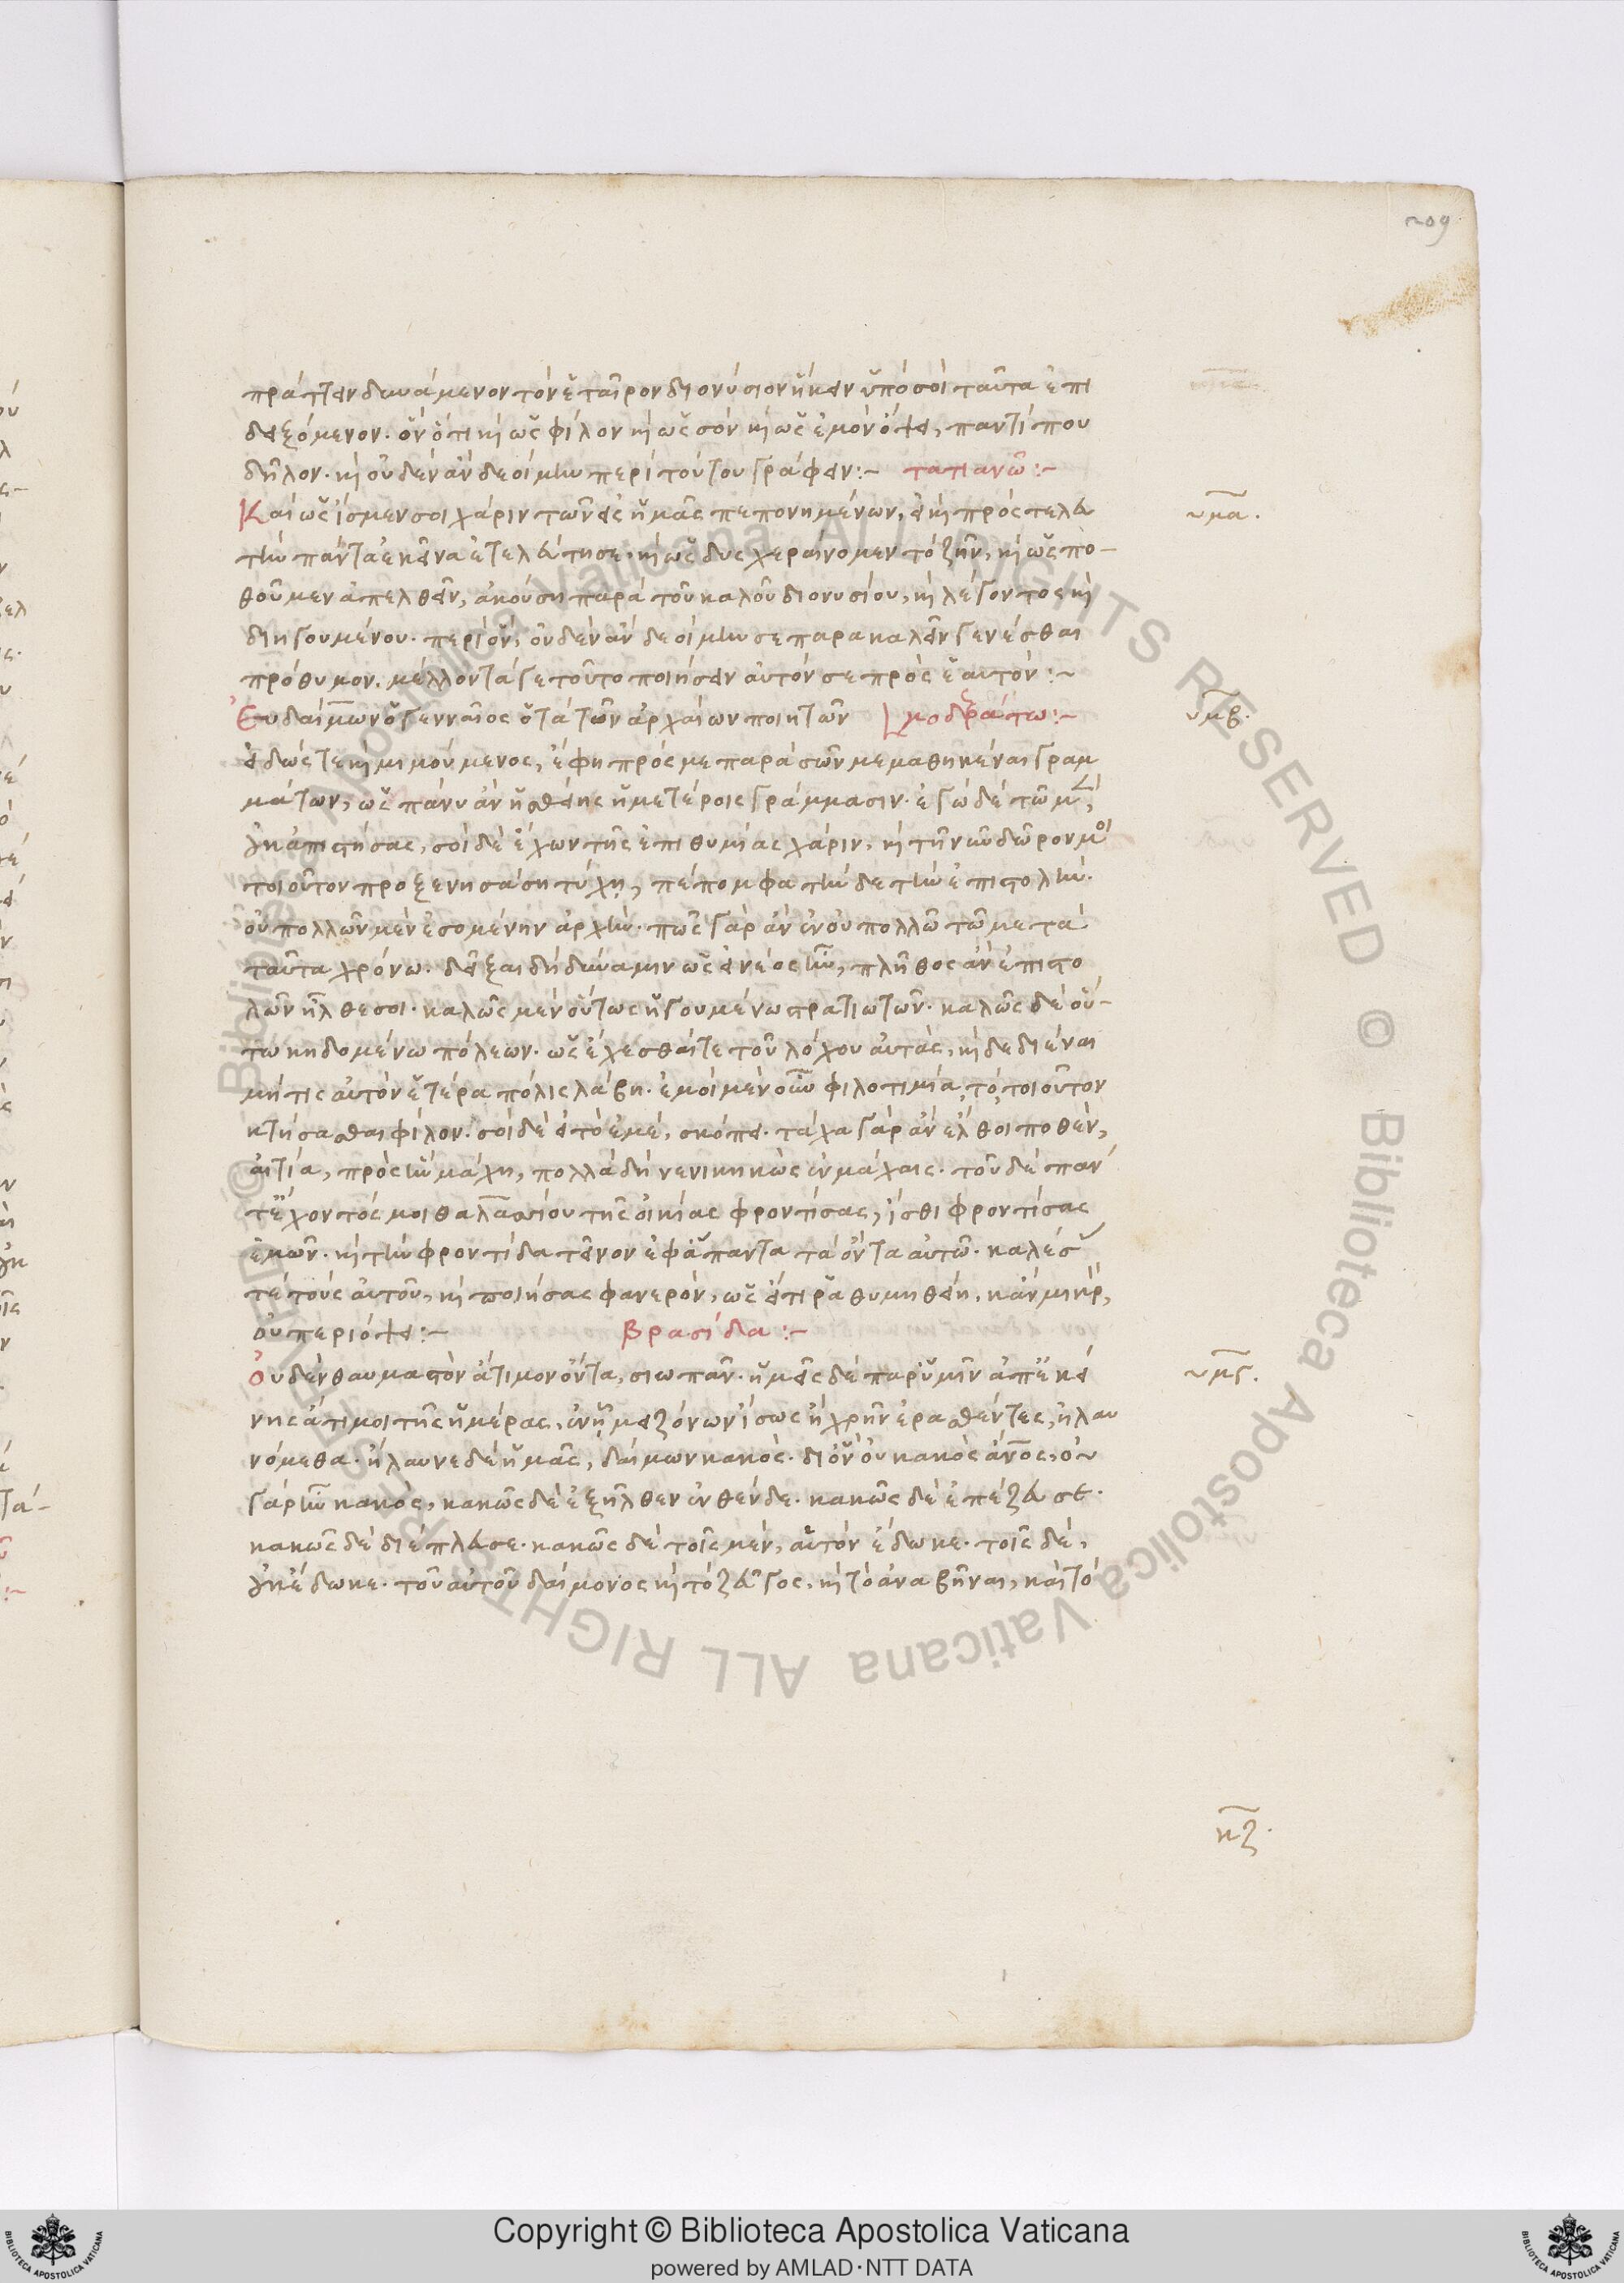 209
πράττειν δυνάμενον τὸν ἑταῖρον διονύσιον ἥκειν ὑπὸ σοὶ ταῦτα ἐπι
δειξόμενον. ὃν ὅτι καὶ ὡς φίλον καὶ ὡς σὸν καὶ ὡς ἐμὸν ὄψει, παντί που
δῆλον. καὶ οὐδὲν ἂν δεοίμην περὶ τούτου γράφειν :~ τατιανῶ :~
Καὶ ὡς ἴσμεν σοι χάριν τῶν εἰς ἡμᾶς πεπονημένων, εἰ καὶ πρὸς τελευ
τὴν πάντα ἐκεῖνα ἐτελεύτησε. καὶ ὡς δυσχεραίνομεν τὸ ζῆν, καὶ ὡς πο-
θοῦμεν ἀπελθεῖν, ἀκούση παρὰ τοῦ καλοῦ διονυσίου, καὶ λέγοντος καὶ
διηγουμένου. περὶ ὃν, οὐδὲν ἂν δεοίμην σε παρακαλεῖν γενέσθαι
πρόθυμον. μέλλοντά γε τοῦτο ποιήσειν αὐτόν σε πρὸς ἑαυτόν :~
Εὐδαίμων ὁ γενναῖος ὁ τὰ τῶν ἀρχαίων ποιητῶν μοδεράτω :~
εἰδώς τε καὶ μιμούμενος, ἔφη πρός με παρὰ σῶν μεμαθηκέναι γραμ
μάτων, ὡς πάνυ ἂν ἡσθείης ἡμετέροις γράμμασιν. ἐγὼ δὲ τῶ μὲν,
οὐκ ἀπιστήσας, σοὶ δὲ ἔχων τῆς ἐπιθυμίας χάριν, καὶ τῆ νῦν δῶρον μοι
τοιοῦτον προξενησάση τύχη, πέπομφα τήνδε τὴν ἐπιστολήν.
οὐ πολλῶν μὲν ἐσομένην ἀρχήν. πῶς γὰρ ἂν ἐν οὐ πολλῶ τῶ μετὰ
ταῦτα χρόνω. δεῖξαι δὴ δύναμιν ὡς εἰ νέος ἦν, πλῆθος ἂν ἐπιστο
λῶν ἦλθέ σοι. καλῶς μὲν οὕτως ἡγουμένω στρατιωτῶν. καλῶς δὲ οὕ-
τω κηδομένω πόλεων. ὡς ἔχεσθαί τε τοῦ λόχου αὐτάς, καὶ δεδιέναι
μή τις αὐτὸν ἑτέρα πόλις λάβη. ἐμοὶ μὲν οὖν φιλοτιμία, τὸ τοιοῦτον
κτήσασθαι φίλον. σοὶ δὲ εἰ τὸ ἐμέ, σκόπει. τάχα γὰρ ἂν ἔλθοι ποθὲν,
αἰτία, πρὸς ἣν μάχη, πολλὰ δὴ νενικηκὼς ἐν μάχαις. τοῦ δὲ πάν
τ' ἔχοντός μοι θαλασσίου τῆς οἰκίας φροντίσας, ἴσθι φροντίσας
ἐμῶν. καὶ τὴν φροντίδα τεῖνον ἐφ' ἅπαντα τὰ ὄντα αὐτῶ. καλέσας
τε τοὺς αὐτοῦ, καὶ ποιήσας φανερὸν, ὡς εἴ τι ῥαθυμηθείη, κἂν μικρὸν,
οὐ περιόψει :~ βρασίδα :~
Οὐδὲν θαυμαστὸν ἄτιμον ὄντα, σιωπᾶν. ἡμεῖς δὲ παρ' ὑμῖν ἀπ' ἐκεί
νης ἄτιμοι τῆς ἡμέρας, ἐν ἧ μειζόνων ἴσως ἢ χρῆν ἐρασθέντες, ἠλαυ
νόμεθα. ἤλαυνε δὲ ἡμᾶς, δαίμων κακός. δι' ὃν οὐ κακὸς ἄνθρωπος, οὐ
γὰρ ἦν κακός, κακῶς δὲ ἐξῆλθεν ἐνθένδε. κακῶς δὲ ἐπέζευσε.
κακῶς δὲ διέπλευσε. κακῶς δὲ τοῖς μὲν, αὑτὸν ἔδωκε. τοῖς δὲ,
οὐκ ἔδωκε. τοῦ αὐτοῦ δαίμονος καὶ τὸ ζεῦγος, καὶ τὸ ἀναβῆναι, καὶ τὸ
υμα.
υμβ.
υμγ.
κζ.
Copyright © Biblioteca Apostolica Vaticana
powered by AMLAD·NTT DATA